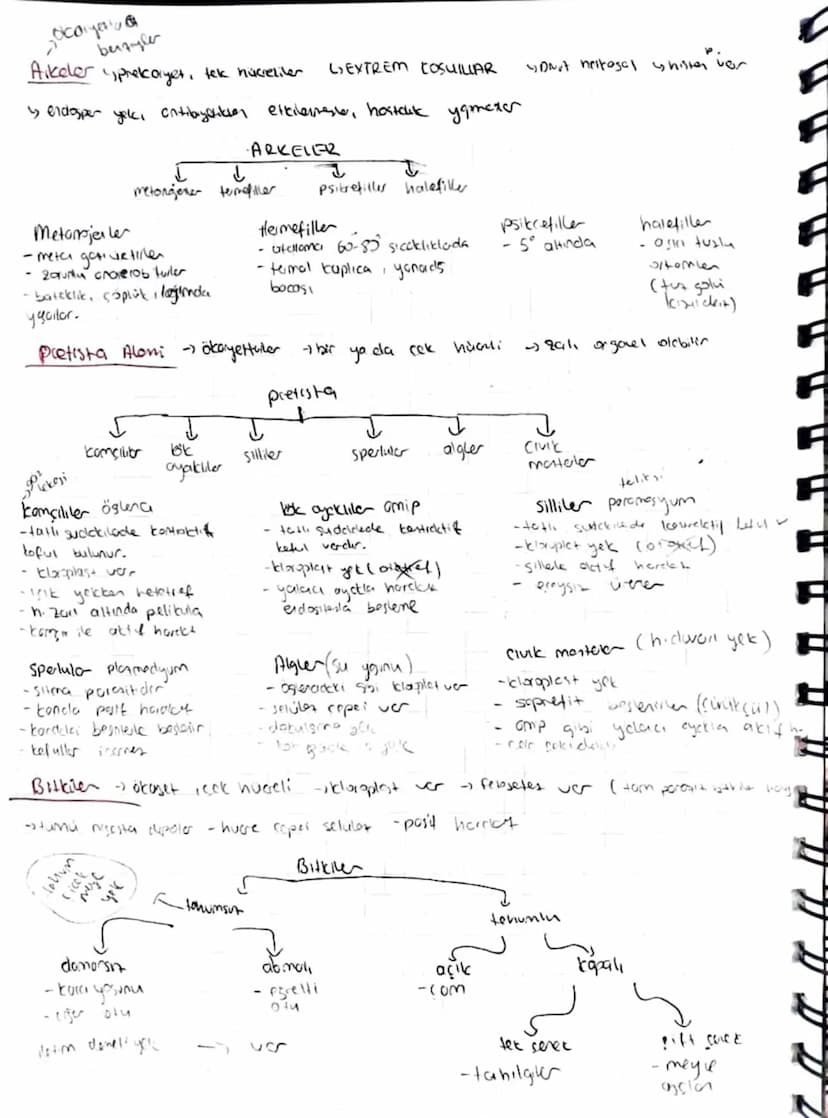 ökaryota
benzerler
Arkeler ↳ prokaryot, tek hücreliler ↳ EXTREM KOŞULLAR ↳ DNA'sı halkasal ↳ histon var
↳ endospor yok, antibiyotikten etkilenmezler, hastalık yapmazlar
ARKELER
metanojenler termofiller psikrofiller halofiller
Metanojenler
- metan gazı üretirler
- zorunlu anaerob türler
- bataklık, çöplük, lağımda
yaşarlar.
termofiller
- ortalama 60-80° sıcaklıklarda
- termal kaplıca, yanardağ
bacası
psikrofiller
- 5° altında
halofiller
- aşırı tuzlu
ortamlar
(tuz gölü
kızıldeniz)
Protista Alemi → ökaryotturlar → bir ya da çok hücreli → zarlı organel olabilir
protista
kamçılılar kök ayaklılar silliler sporlular algler cıvık mantarlar
göz lekesi
Kamçılılar öglena
- tatlı sudakilerde kontraktil
koful bulunur.
- kloroplast var
- ışık yokken heterotrof
- h. zarı altında pelikula
- kamçı ile aktif hareket
kök ayaklılar amip
- tatlı sudakilerde kontraktil
koful vardır.
- kloroplast yok (ototrof)
- yalancı ayakla hareket
endositozla beslenme
terliksi
silliler paramesyum
- tatlı sudakilerde kontraktil koful ✓
- kloroplast yok (ototrof)
- sillerle aktif hareket
- eşeysiz ürer
Sporlular plazmodyum
- sıtma parazitidir
- konakta pasif hareket
- konaktaki besinlerle beslenir
- kofullar içermez
Algler (su yosunu)
- öglenadaki gibi kloroplast var
- selüloz çeper var
- dokulaşma yok
cıvık mantarlar (h. duvarı yok)
- kloroplast yok
- saprofit beslenirler (çürükçül)
- amip gibi yalancı ayakla aktif h.
Bitkiler → ökaryot, çok hücreli → kloroplast var → fotosentez var (tam parazit
→ tümü nişasta depolar - hücre çeperi selüloz - pasif hareket
Bitkiler
tohum
çiçek
meyve
yok
tohumsuz tohumlu
damarsız damarlı açık kapalı
- kara yosunu
- ciğer otu
- eğrelti
otu
- çam
iletim demeti yok → var
tek çenek
- tahıllar
çift çenek
- meyve
ağaçları